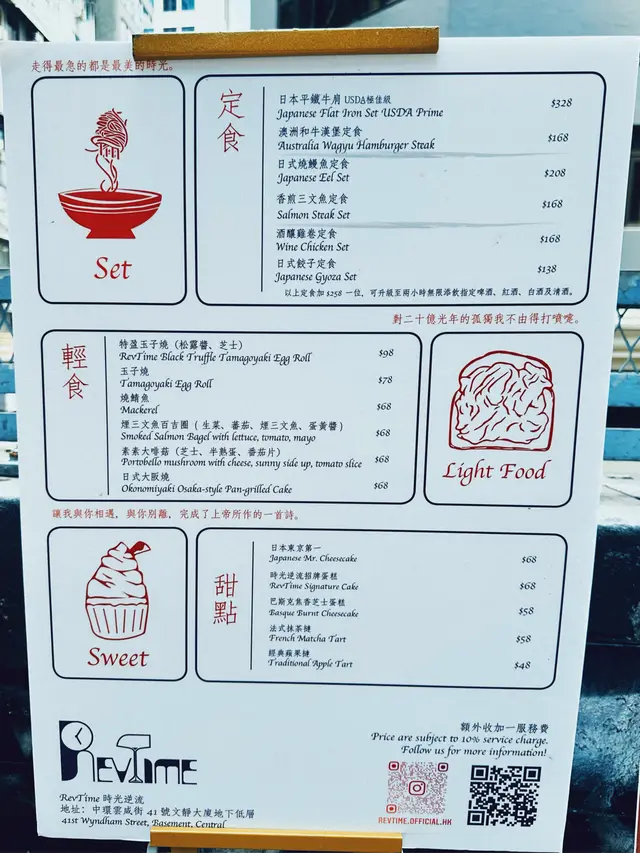 走得最急的都是最美的時光。
Set
定食
日本平鐵牛肩 USDA極佳級
Japanese Flat Iron Set USDA Prime
$328
澳洲和牛漢堡定食
Australia Wagyu Hamburger Steak
$168
日式燒鰻魚定食
Japanese Eel Set
$208
香煎三文魚定食
Salmon Steak Set
$168
酒釀雞卷定食
Wine Chicken Set
$168
日式餃子定食
Japanese Gyoza Set
$138
以上定食加 $258 一位，可升級至兩小時無限添飲指定啤酒、紅酒、白酒及清酒。
對二十億光年的孤獨我不由得打噴嚏。
輕食
特盈玉子燒（松露醬、芝士）
RevTime Black Truffle Tamagoyaki Egg Roll
$98
玉子燒
Tamagoyaki Egg Roll
$78
燒鯖魚
Mackerel
$68
煙三文魚百吉圈 ( 生菜、蕃茄、煙三文魚、蛋黃醬 )
Smoked Salmon Bagel with lettuce, tomato, mayo
$68
素素大啡菇（芝士、半熟蛋、番茄片）
Portobello mushroom with cheese, sunny side up, tomato slice
$68
日式大阪燒
Okonomiyaki Osaka-style Pan-grilled Cake
$68
Light Food
讓我與你相遇，與你別離，完成了上帝所作的一首詩。
Sweet
甜點
日本東京第一
Japanese Mr. Cheesecake
$68
時光逆流招牌蛋糕
RevTime Signature Cake
$68
巴斯克焦香芝士蛋糕
Basque Burnt Cheesecake
$58
法式抹茶撻
French Matcha Tart
$58
經典蘋果撻
Traditional Apple Tart
$48
REVTIME
額外收加一服務費
Price are subject to 10% service charge.
Follow us for more information!
REVTIME.OFFICIAL.HK
RevTime 時光逆流
地址：中環雲咸街 41 號文靜大廈地下低層
41st Wyndham Street, Basement, Central